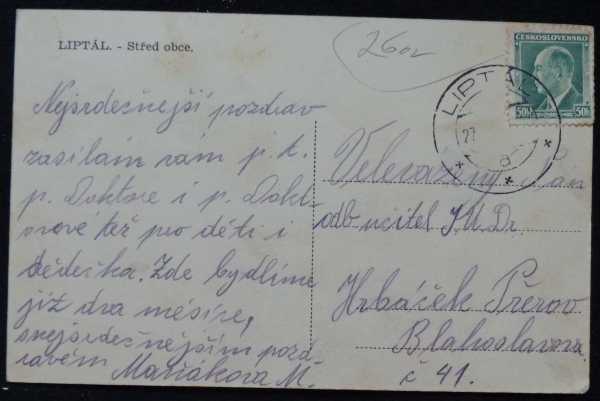 LIPTÁL. - Střed obce.
260L
ČESKOSLOVENSKO
50h 50h
LIPTÁL
27
a
Nejsrdečnější pozdrav
zasílám vám p. t.
p. Doktore i p. Dokt-
orové též pro děti i
dědečka. Zde bydlíme
již dva měsíce,
snejsrdečnějším pozd
ravem Maňákova M.
Velevážený Pán
odb učitel J.U.Dr.
Hrbáček Přerov
Blahoslavova
č 41.